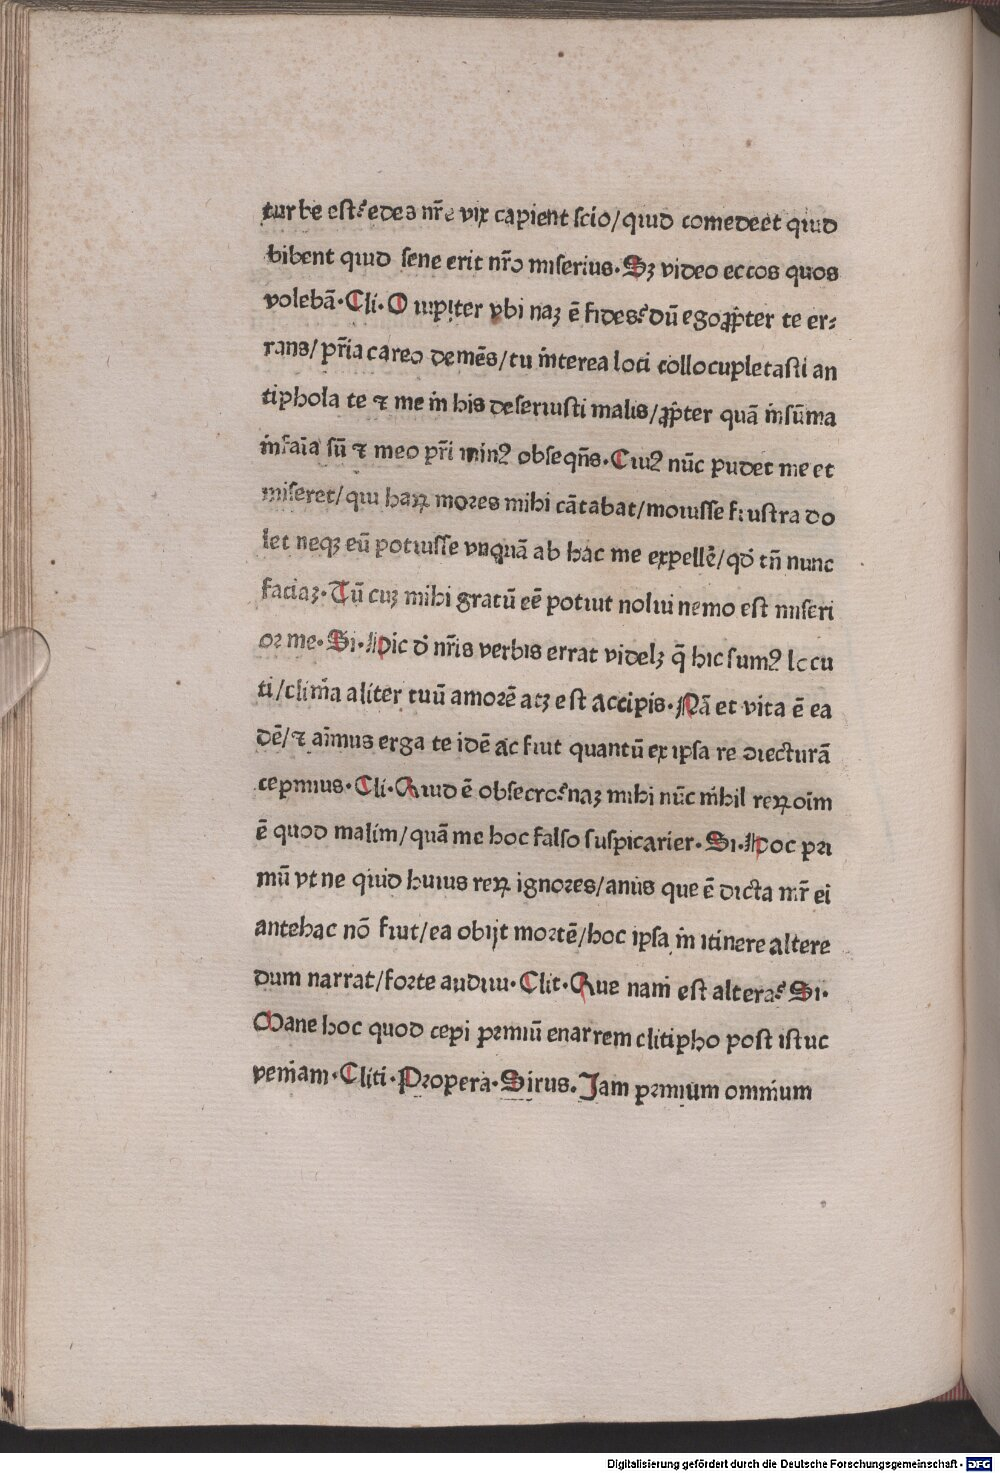 turbe est? edes nr̄e vix capient scio/quid comedēt quid
bibent quid sene erit nr̄o miserius. Sꝫ video eccos quos
volebā. Cli. O iupiter vbi naꝫ ē fides? dū ego ꝓpter te er⸗
rans/pr̄ia careo demēs/tu īnterea loci collocupletasti an
tiphola te ⁊ me īn his deseruisti malis/ꝓpter quā īn sūma
īnfaīa sū ⁊ meo pr̄i minꝰ obseqn̄s. Cuiꝰ nūc pudet me et
miseret/qui haꝝ mores mihi cātabat/moiusse frustra do
let neqꝫ eū potuisse vnquā ab hac me expellē/qd̄ tn̄ nunc
faciaꝫ. Tū cuꝫ mihi gratū eē potuit nolui nemo est miseri
or me. Si. Hic d̄ nr̄is verbis errat videlꝫ q̄ hic sumꝰ locu
ti/clinīa aliter tuū amorē atꝫ est accipis. Nā et vita ē ea
dē/⁊ aīmus erga te idē ac fuit quantū ex ipsa re diecturā
cepimus. Cli. Quid ē obsecro? naꝫ mihi nūc nīhil reꝝ oīm
ē quod malim/quā me hoc falso suspicarier. Si. Hoc pri
mū vt ne quid huius reꝝ ignores/anus que ē dicta mr̄ ei
antehac nō fuit/ea obijt mortē/hoc ipsa īn itinere altere
dum narrat/forte audiui. Clit. Que nam est altera? Si.
Mane hoc quod cepi primū enarrem clitipho post istuc
venīam. Cliti. Propera. Sirus. Jam primum omnīum
Digitalisierung gefördert durch die Deutsche Forschungsgemeinschaft - DFG